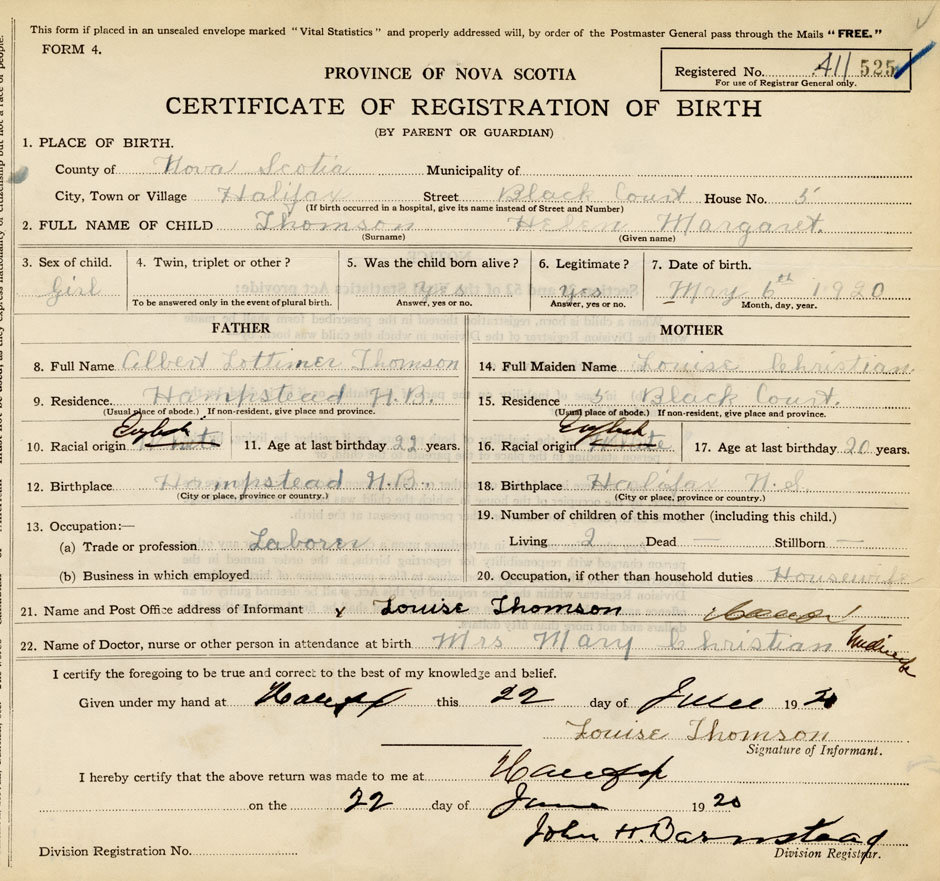 This form if placed in an unsealed envelope marked "Vital Statistics" and properly addressed will, by order of the Postmaster General pass through the Mails "FREE."
FORM 4.
Registered No. 411 525
For use of Registrar General only.
PROVINCE OF NOVA SCOTIA
CERTIFICATE OF REGISTRATION OF BIRTH
(BY PARENT OR GUARDIAN)
1. PLACE OF BIRTH.
County of Nova Scotia Municipality of
City, Town or Village Halifax Street Black Court House No. 5
(If birth occurred in a hospital, give its name instead of Street and Number)
2. FULL NAME OF CHILD Thomson Helen Margaret.
(Surname) (Given name)
3. Sex of child. 4. Twin, triplet or other? 5. Was the child born alive? 6. Legitimate? 7. Date of birth.
Girl Yes Yes May 6th 1920
To be answered only in the event of plural birth. Answer, yes or no. Answer, yes or no. Month, day, year.
FATHER MOTHER
8. Full Name Albert Lottimer Thomson 14. Full Maiden Name Louise Christian
9. Residence. Hampstead N.B. 15. Residence 5 Black Court.
(Usual place of abode.) If non-resident, give place and province. (Usual place of abode.) If non-resident, give place and province.
English English
10. Racial origin White 11. Age at last birthday 22 years. 16. Racial origin White 17. Age at last birthday 20 years.
12. Birthplace Hampstead N.B. 18. Birthplace Halifax N.S.
(City or place, province or country.) (City or place, province or country.)
13. Occupation:— 19. Number of children of this mother (including this child.)
(a) Trade or profession Laborer Living 2 Dead — Stillborn —
(b) Business in which employed 20. Occupation, if other than household duties Housewife
21. Name and Post Office address of Informant x Louise Thomson
22. Name of Doctor, nurse or other person in attendance at birth Mrs Mary Christian Midwife
I certify the foregoing to be true and correct to the best of my knowledge and belief.
Given under my hand at Halifax this 22 day of June 1920
Louise Thomson
Signature of Informant.
I hereby certify that the above return was made to me at Halifax
on the 22 day of June 1920
John H. Barnstead
Division Registration No. Division Registrar.